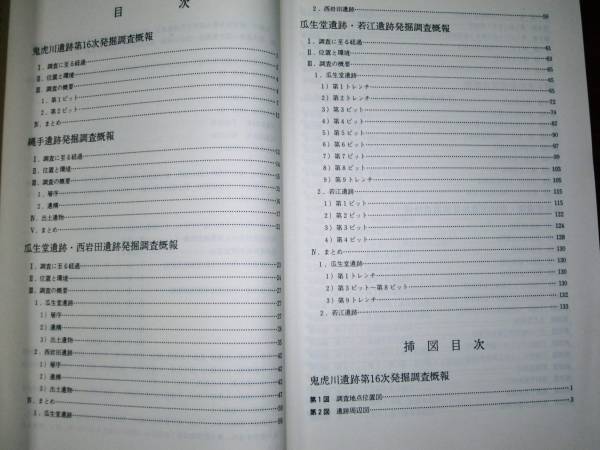 目 次
鬼虎川遺跡第16次発掘調査概報
Ⅰ．調査に至る経過
Ⅱ．位置と環境
Ⅲ．調査の概要
1．第1ピット
2．第2ピット
Ⅳ．まとめ
縄手遺跡発掘調査概報
Ⅰ．調査に至る経過
Ⅱ．位置と環境
Ⅲ．調査の概要
1．層序
2．遺構
Ⅳ．出土遺物
Ⅴ．まとめ
瓜生堂遺跡・西岩田遺跡発掘調査概報
Ⅰ．調査に至る経過
Ⅱ．位置と環境
Ⅲ．調査の概要
1．瓜生堂遺跡
1）層序
2）遺構
3）出土遺物
2．西岩田遺跡
1）層序
2）遺構
3）出土遺物
Ⅳ．まとめ
1．瓜生堂遺跡
2．西岩田遺跡
瓜生堂遺跡・若江遺跡発掘調査概報
Ⅰ．調査に至る経過 61
Ⅱ．位置と環境
Ⅲ．調査の概要 65
1．瓜生堂遺跡 65
1）第1トレンチ 65
2）第2トレンチ 72
3）第3ピット 74
4）第4ピット
5）第5ピット
6）第6ピット 90
7）第7ピット
8）第8ピット
9）第9トレンチ 105
2．若江遺跡 115
1）第1ピット 115
2）第2ピット 122
3）第3ピット 124
4）第4ピット 128
Ⅳ．まとめ 130
1．瓜生堂遺跡 130
1）第1トレンチ 130
2）第3ピット～第8ピット 130
3）第9トレンチ 132
2．若江遺跡 133
挿図目次
鬼虎川遺跡第16次発掘調査概報
第1図 調査地点位置図 1
第2図 遺跡周辺図 3